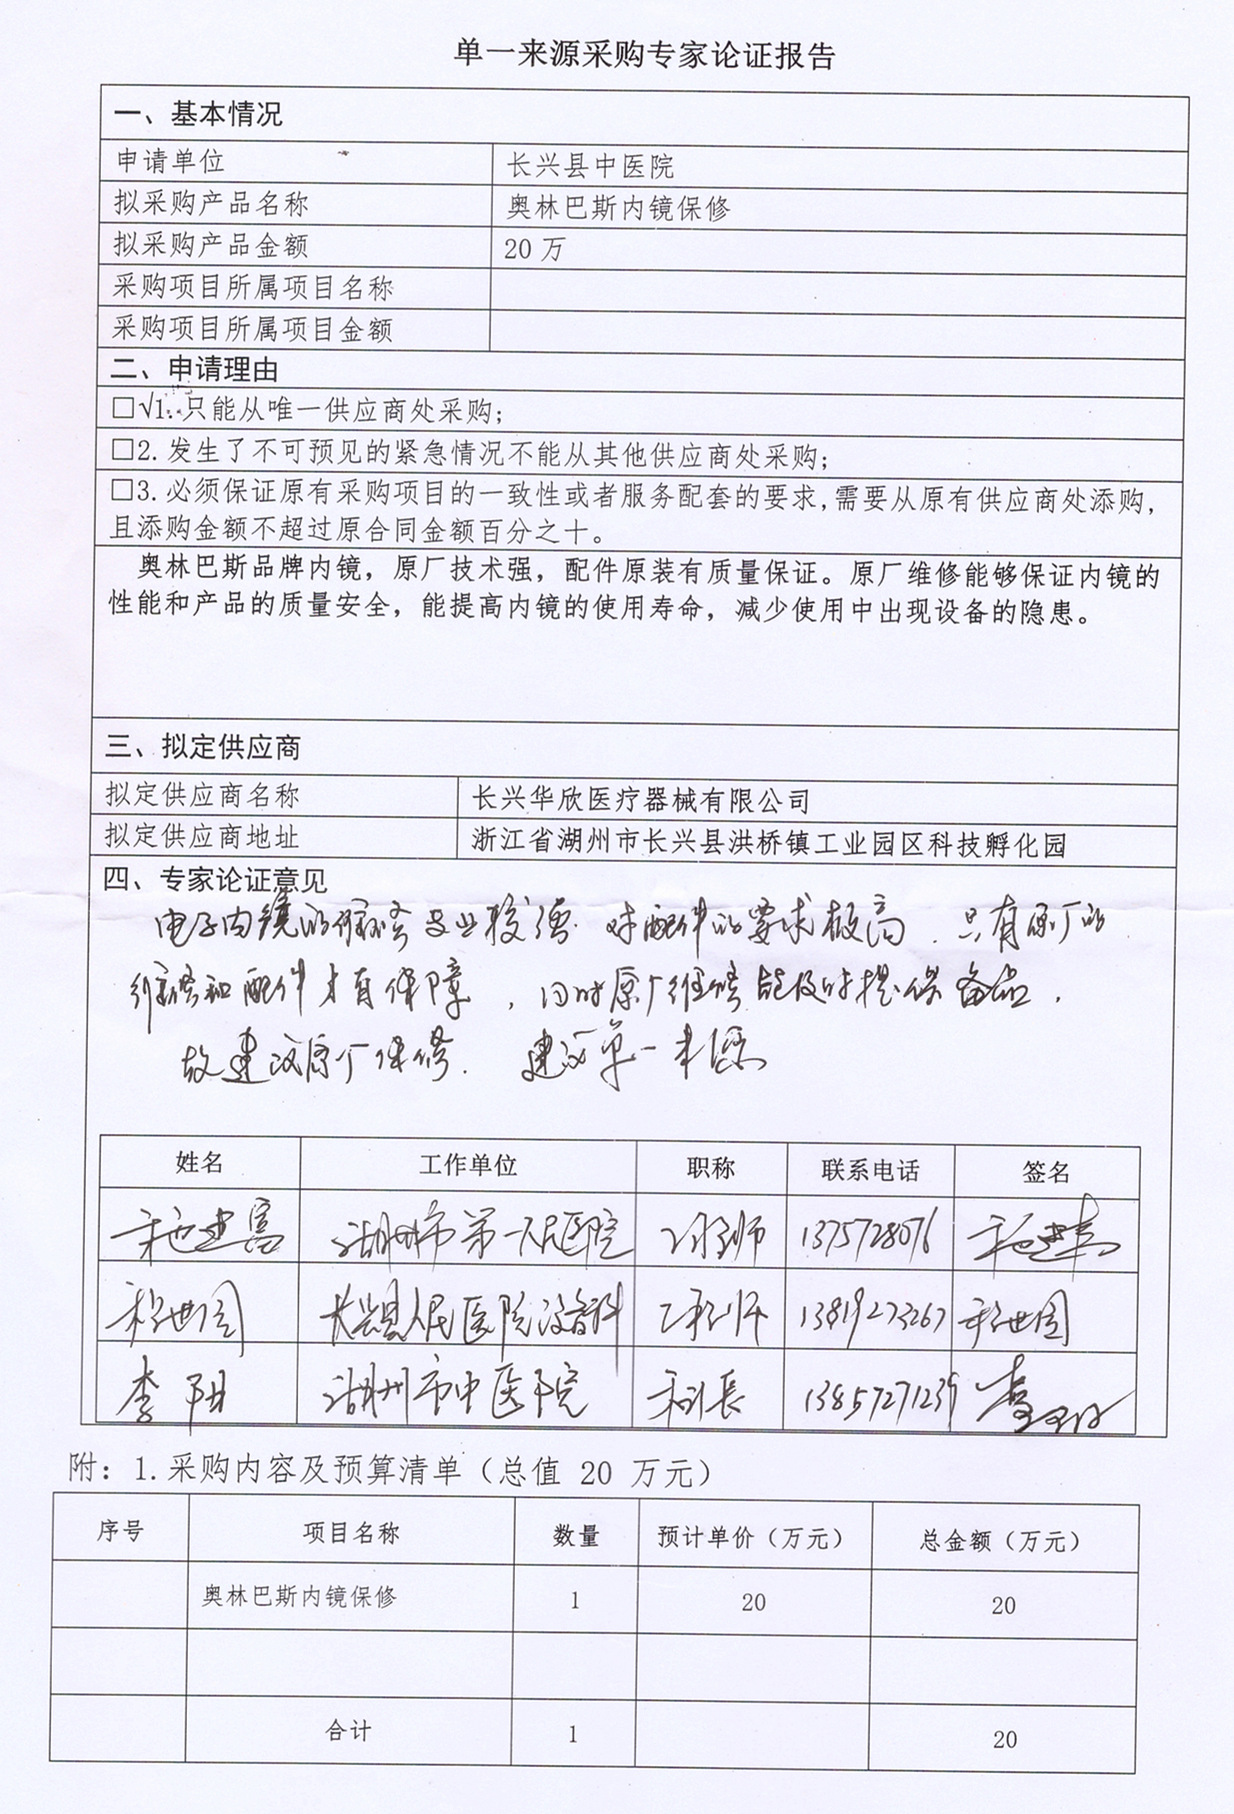 单一来源采购专家论证报告
一、基本情况
申请单位 长兴县中医院
拟采购产品名称 奥林巴斯内镜保修
拟采购产品金额 20 万
采购项目所属项目名称
采购项目所属项目金额
二、申请理由
□√1.只能从唯一供应商处采购;
□2.发生了不可预见的紧急情况不能从其他供应商处采购;
□3.必须保证原有采购项目的一致性或者服务配套的要求,需要从原有供应商处添购,
且添购金额不超过原合同金额百分之十。
奥林巴斯品牌内镜，原厂技术强，配件原装有质量保证。原厂维修能够保证内镜的
性能和产品的质量安全，能提高内镜的使用寿命，减少使用中出现设备的隐患。
三、拟定供应商
拟定供应商名称 长兴华欣医疗器械有限公司
拟定供应商地址 浙江省湖州市长兴县洪桥镇工业园区科技孵化园
四、专家论证意见
电子内镜的维修专业较强.对配件的要求极高.只有原厂的
维修和配件才有保障，同时原厂维修能及时提供备品.
故建议原厂保修.建议单一来源
姓名 工作单位 职称 联系电话 签名
湖州市第一人民医院 工程师 1375728076
长兴县人民医院设备科 工程师 13819273267
李阳 湖州市中医院 科长 13857271239
附：1.采购内容及预算清单（总值 20 万元）
序号 项目名称 数量 预计单价（万元） 总金额（万元）
奥林巴斯内镜保修 1 20 20
合计 1 20